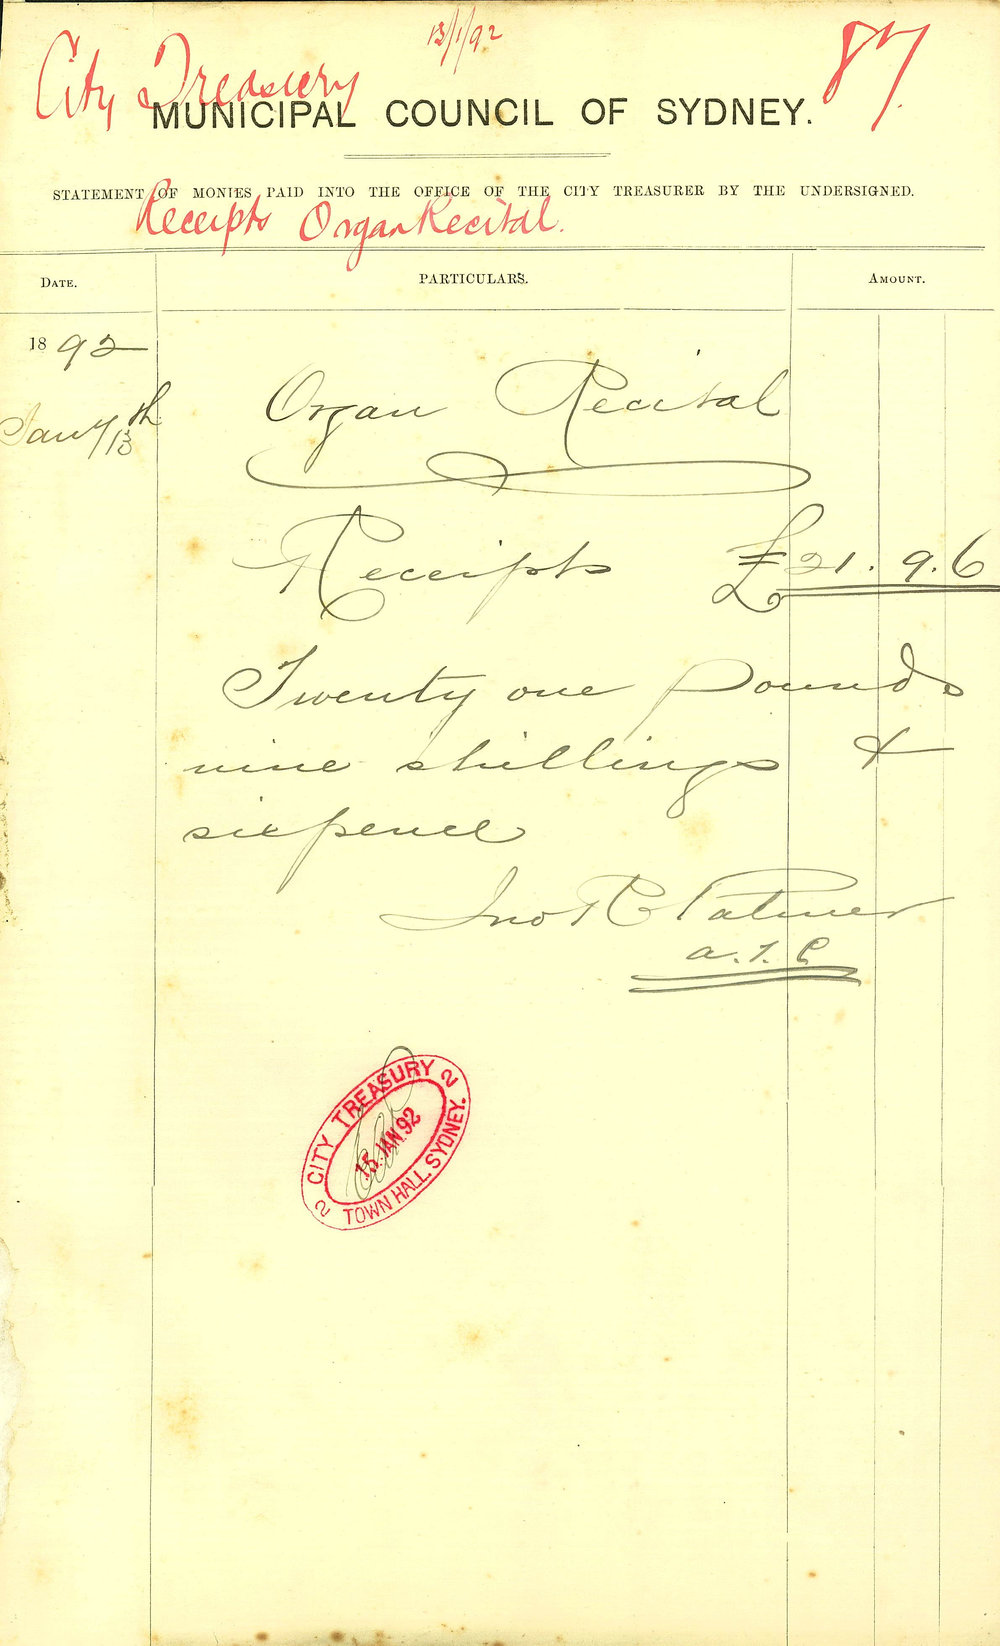 13/1/92
City Treasury 87.
MUNICIPAL COUNCIL OF SYDNEY.
STATEMENT OF MONIES PAID INTO THE OFFICE OF THE CITY TREASURER BY THE UNDERSIGNED.
Receipts Organ Recital.
DATE. PARTICULARS. AMOUNT.
1892
Jany 13th Organ Recital
Receipts £21.9.6
Twenty one pounds
nine shillings &
sixpence
Jno R Palmer
CITY TREASURY
15 JAN. 92
TOWN HALL. SYDNEY.
2 2